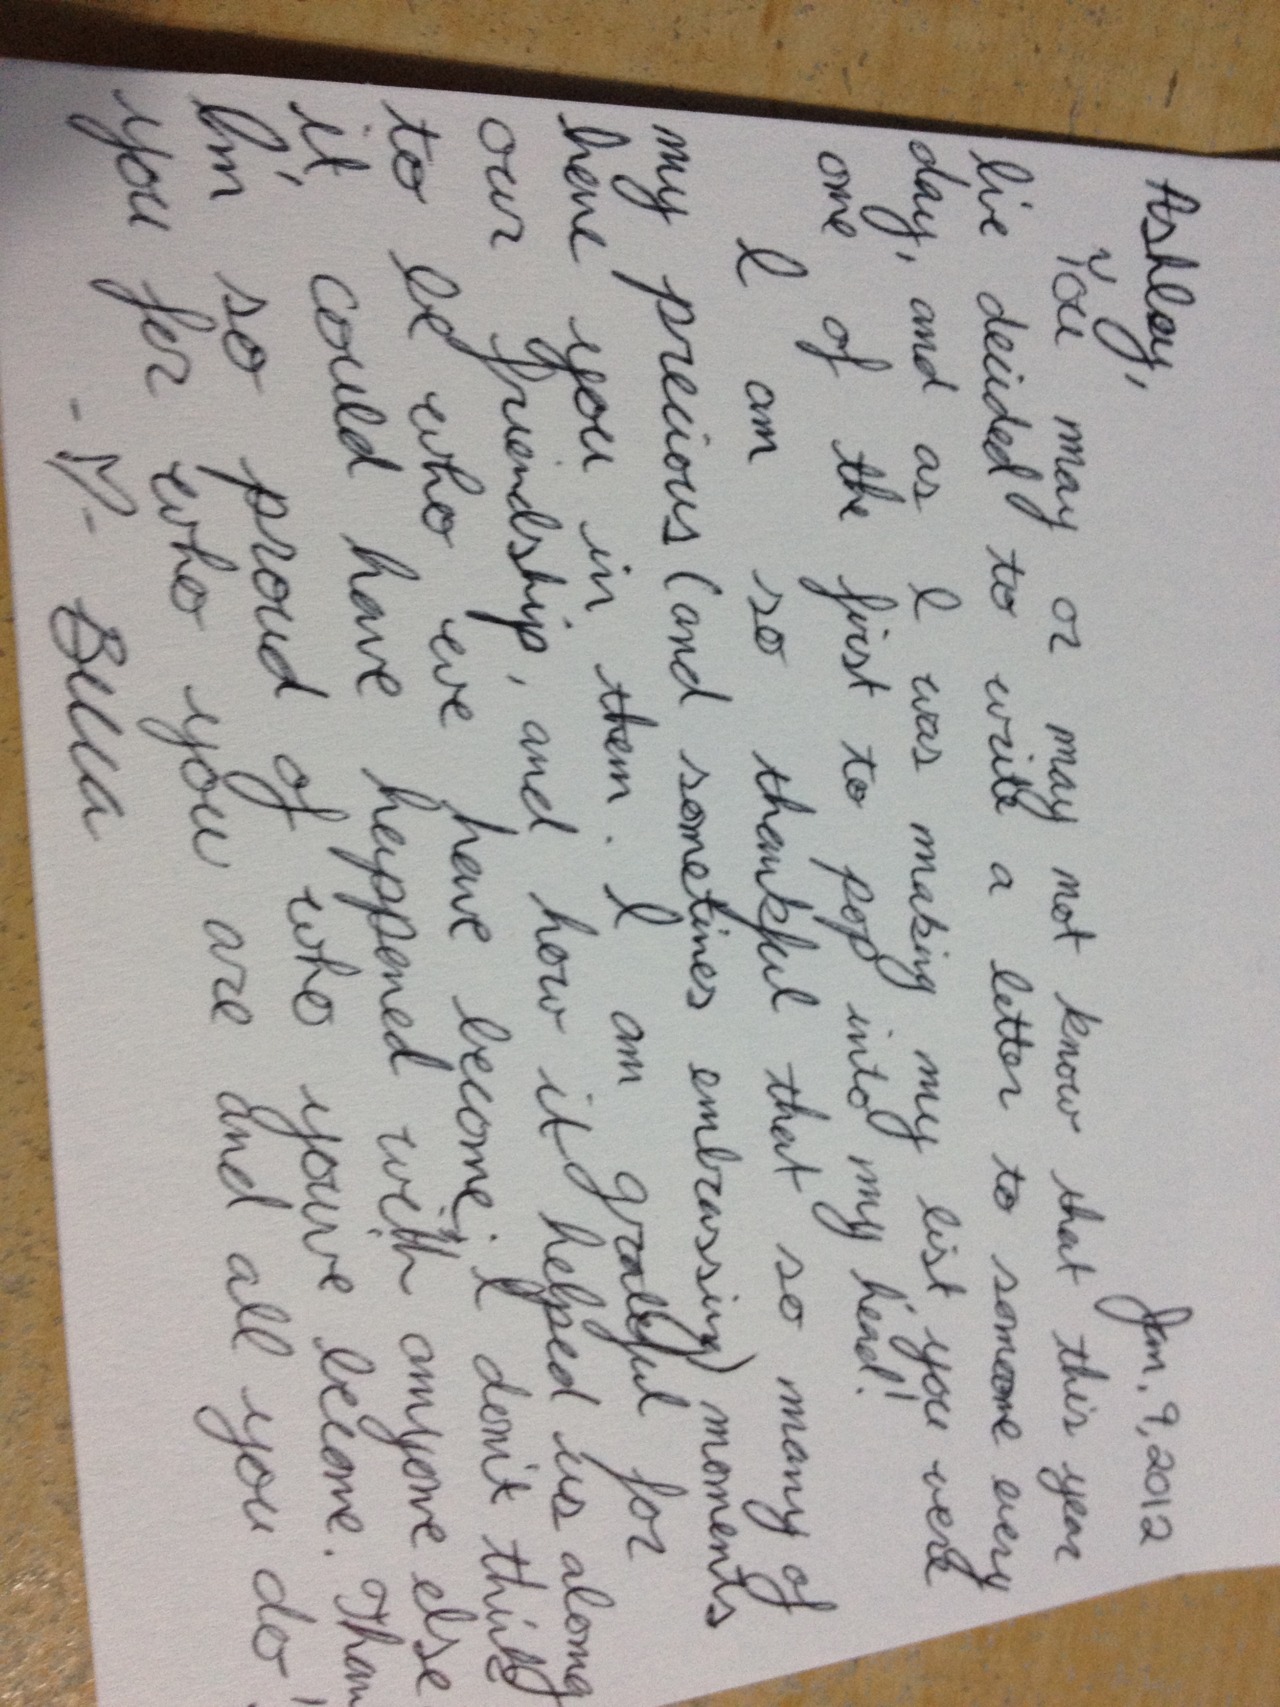 Jan. 9, 2012
Ashley,
You may or may not know that this year
I've decided to write a letter to someone every
day, and as I was making my list, you were
one of the first to pop into my head!
I am so thankful that so many of
my precious (and sometimes embrassing) moments
have you in them. I am grateful for
our friendship, and how it helped us along
to be who we have become; I don't think
it could have happened with anyone else
I'm so proud of who youve become. Than
you for who you are and all you do!
-♡-